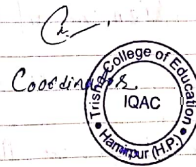 Coordinator
Trisha College of Education
IQAC
Hamirpur (H.P.)